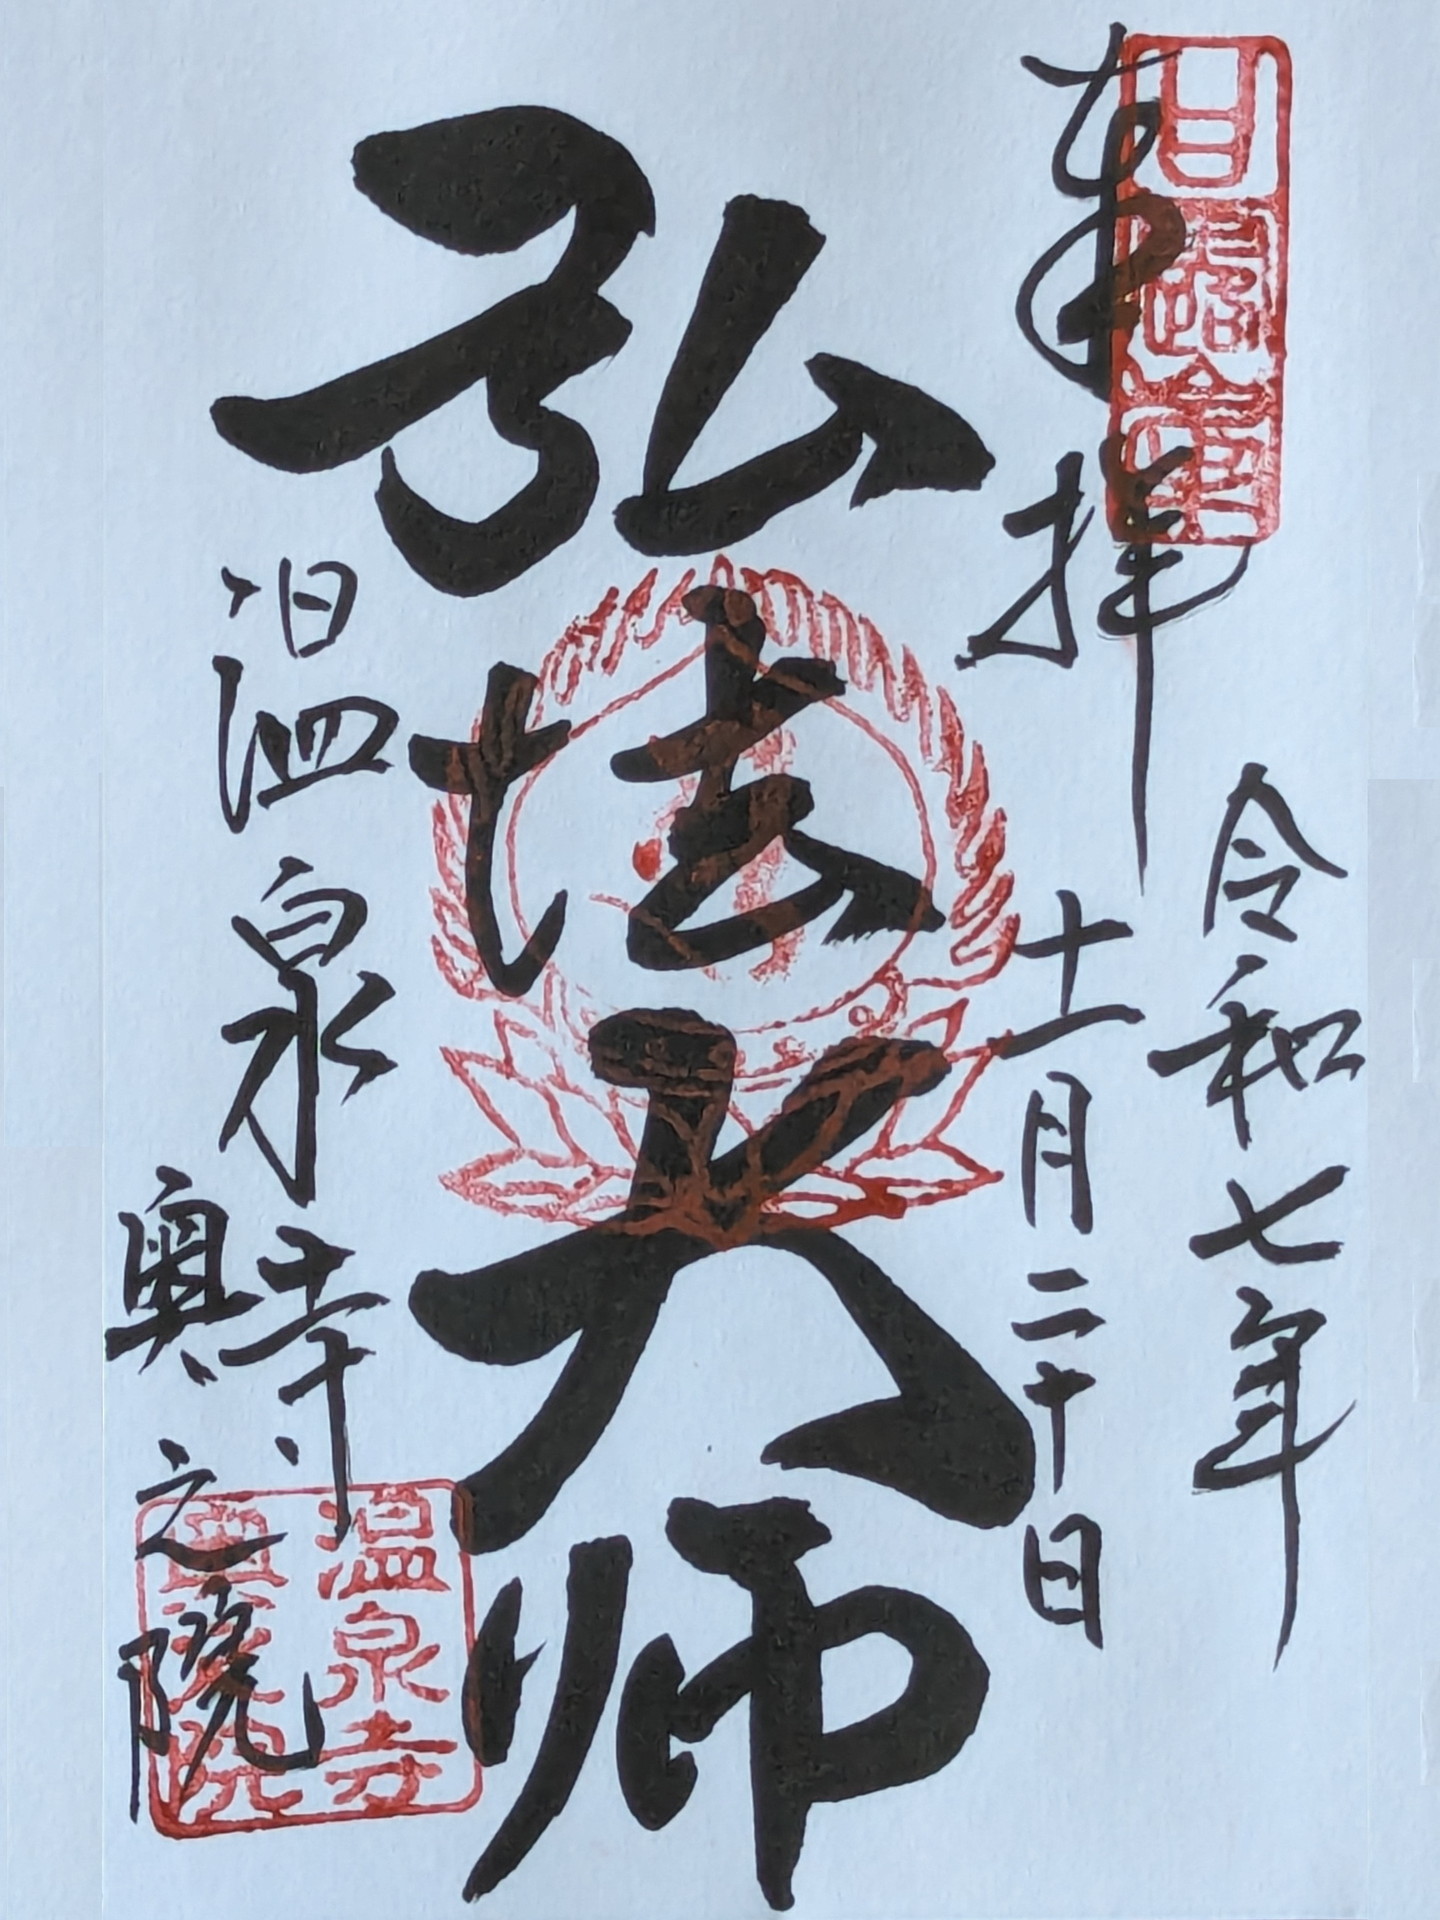 奉拝
甘露山
令和七年
十一月二十日
弘法大师
温泉寺
奥之院
温泉寺
奥之院